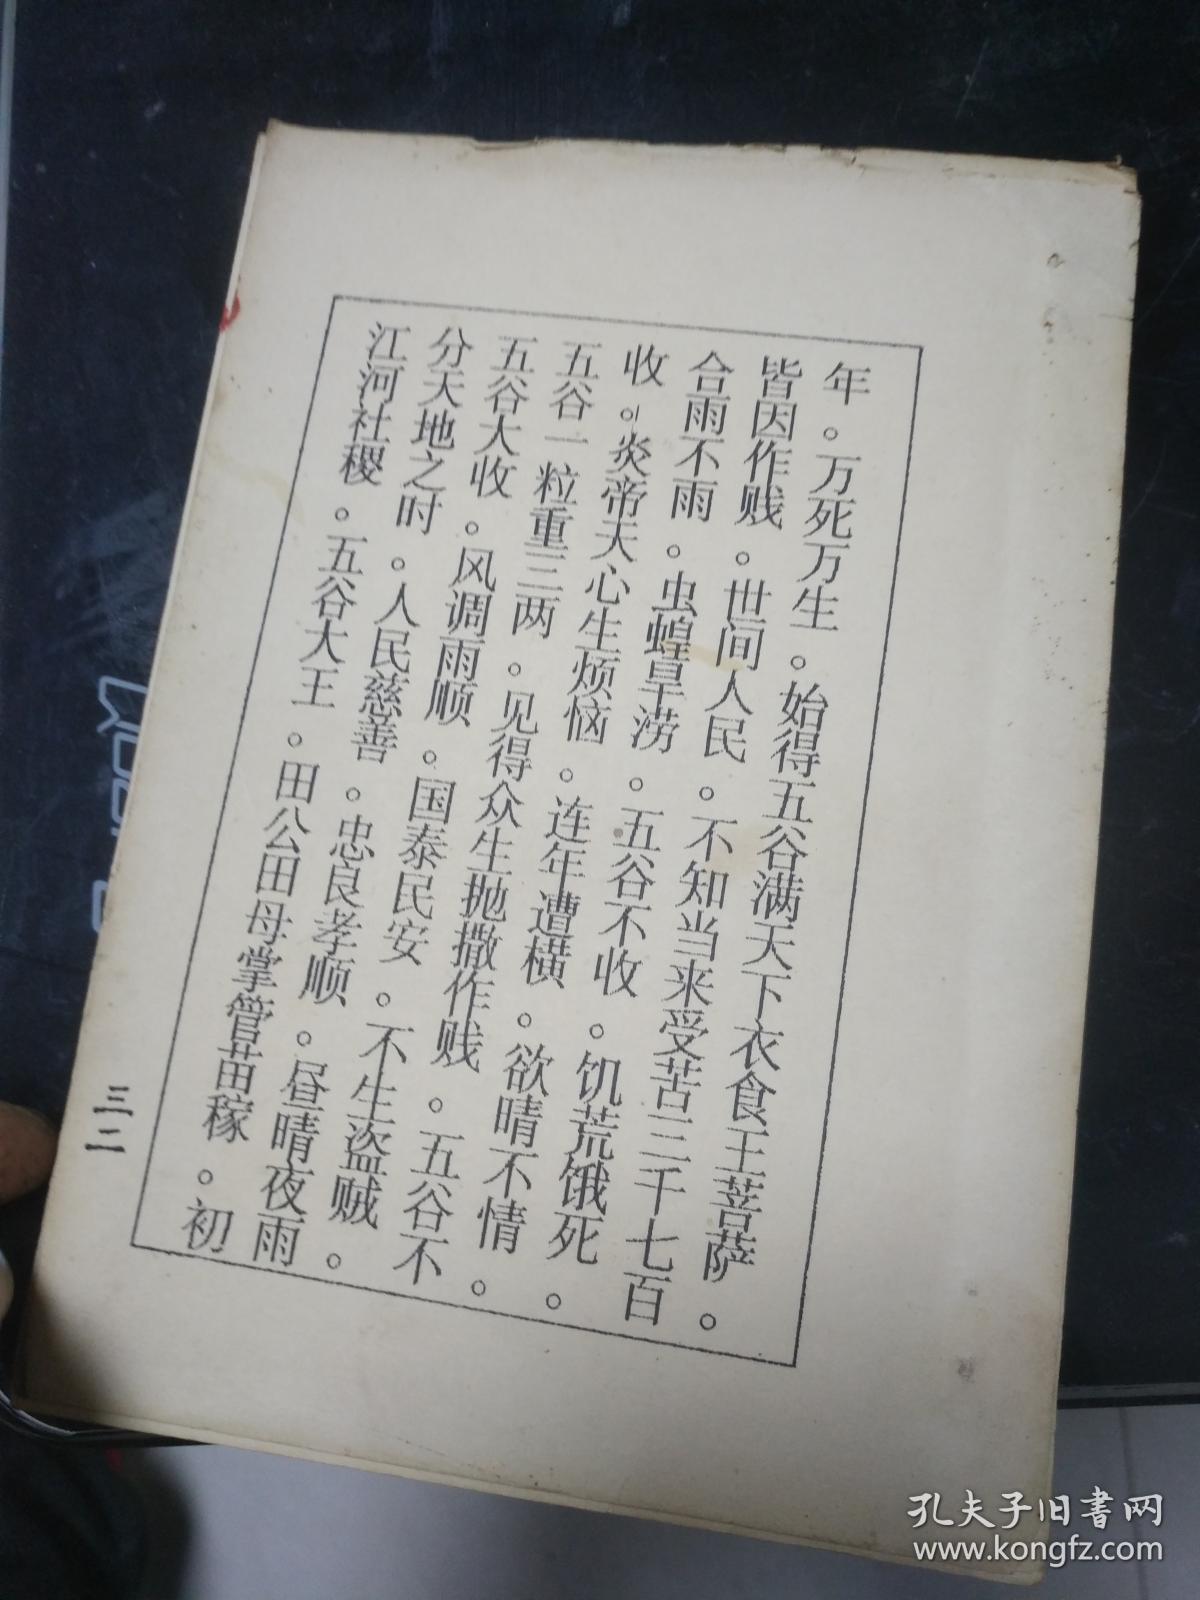 年。万死万生。始得五谷满天下衣食王菩萨。
皆因作贱。世间人民。不知当来受苦三千七百
合雨不雨。虫蝗旱涝。五谷不收。饥荒饿死。
收。炎帝天心生烦恼。连年遭横。欲晴不情。
五谷一粒重三两。见得众生抛撒作贱。五谷不
五谷大收。风调雨顺。国泰民安。不生盗贼。
分天地之时。人民慈善。忠良孝顺。昼晴夜雨
江河社稷。五谷大王。田公田母掌管苗稼。初
三二
孔夫子旧书网
www.kongfz.com